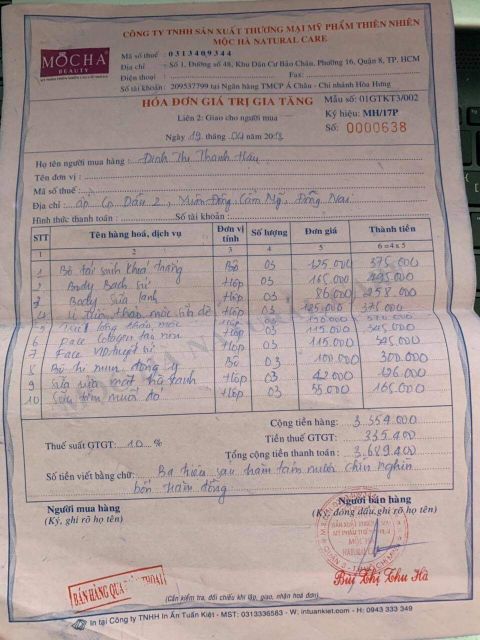 MOCHA
BEAUTY
CÔNG TY TNHH SẢN XUẤT THƯƠNG MẠI MỸ PHẨM THIÊN NHIÊN
MỘC HÀ NATURAL CARE
Mã số thuế : 0313409344
Địa chỉ : Số 1, Đường số 48, Khu Dân Cư Bảo Châu, Phường 16, Quận 8, TP. HCM
Điện thoại : Fax:
Số tài khoản : 209537799 tại Ngân hàng TMCP Á Châu - Chi nhánh Hòa Hưng
HÓA ĐƠN GIÁ TRỊ GIA TĂNG
Mẫu số: 01GTKT3/002
Liên 2: Giao cho người mua
Ký hiệu: MH/17P
Số: 0000638
Ngày 19 tháng 04 năm 2018
Họ tên người mua hàng : Đinh Thị Thanh Hậu
Tên đơn vị :
Mã số thuế :
Địa chỉ : ấp Cọ Dầu 2, Xuân Đông, Cẩm Mỹ, Đồng Nai
Hình thức thanh toán : Số tài khoản :
STT Tên hàng hoá, dịch vụ Đơn vị tính Số lượng Đơn giá Thành tiền
1 2 3 4 5 6=4x5
1 Bộ tái sinh khoá trắng Bộ 03 125.000 375.000
2 Body Bạch sứ Hộp 03 165.000 495.000
3 Body Sữa lạnh Hộp 03 86.000 258.000
4 Ủ trắng thảo mộc sữa dê Hộp 03 125.000 375.000
5 thảo mộc Hộp 03 190.000 570.000
6 Face Collagen tái sinh Hộp 03 115.000 345.000
7 Face VIP tuyết sứ Hộp 03 115.000 345.000
8 Bộ trị mụn đông y Bộ 03 100.000 300.000
9 Sữa rửa mặt trà xanh Hộp 03 42.000 126.000
10 Sữa tắm muối đỏ Hộp 03 55.000 165.000
Cộng tiền hàng: 3.354.000
Thuế suất GTGT: 10 % Tiền thuế GTGT: 335.400
Tổng cộng tiền thanh toán: 3.689.400
Số tiền viết bằng chữ: Ba triệu sáu trăm tám mươi chín nghìn
bốn trăm đồng
Người mua hàng Người bán hàng
(Ký, ghi rõ họ tên) (Ký, đóng dấu, ghi rõ họ tên)
SẢN XUẤT THƯƠNG MẠI
MỸ PHẨM THIÊN NHIÊN
MỘC HÀ
NATURAL CARE
Bùi Thị Thu Hà
BÁN HÀNG QUA ĐIỆN THOẠI
(Cần kiểm tra, đối chiếu khi lập, giao, nhận hoá đơn)
In tại Công ty TNHH In Ấn Tuấn Kiệt - MST: 0313336583 - W: intuankiet.com - H: 0943 333 349